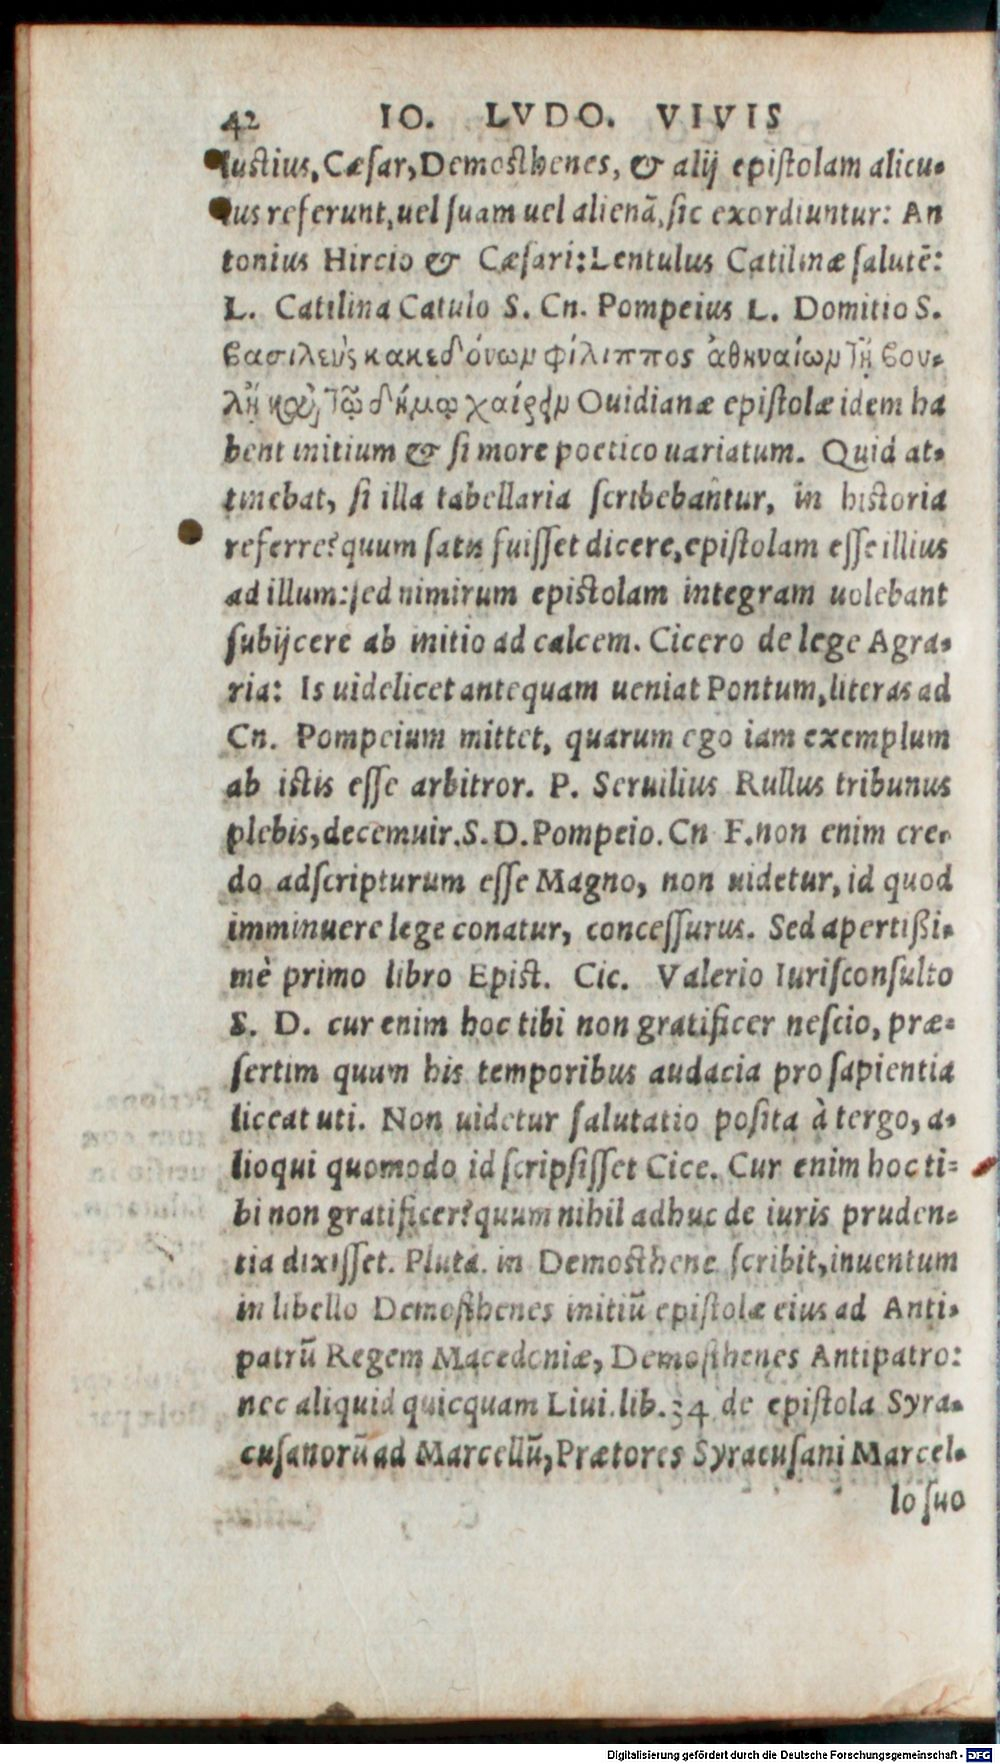 42 IO. LVDO. VIVIS
lustius, Cæſar, Demosthenes, & alij epiſtolam alicu-
ius referunt, uel ſuam uel alienā, ſic exordiuntur: An
tonius Hircio & Cæſari: Lentulus Catilinæ ſalutē:
L. Catilina Catulo S. Cn. Pompeius L. Domitio S.
βασιλεὺς κακεδόνωμ φίλιππος ἀθηναίωμ τῇ βου-
λῇ καὶ τῷ δήμῳ χαίρειμ Ouidianæ epiſtolæ idem ha
bent initium & ſi more poetico uariatum. Quid at-
tinebat, ſi illa tabellaria ſcribebantur, in historia
referre? quum ſatis fuiſſet dicere, epiſtolam eſſe illius
ad illum: ſed nimirum epistolam integram uolebant
ſubijcere ab initio ad calcem. Cicero de lege Agra-
ria: Is uidelicet antequam ueniat Pontum, literas ad
Cn. Pompeium mittet, quarum ego iam exemplum
ab istis eſſe arbitror. P. Seruilius Rullus tribunus
plebis, decemuir. S. D. Pompeio. Cn F. non enim cre-
do adſcripturum eſſe Magno, non uidetur, id quod
imminuere lege conatur, conceſſurus. Sed apertißi-
mè primo libro Epist. Cic. Valerio Iuriſconſulto
S. D. cur enim hoc tibi non gratificer neſcio, præ-
ſertim quum his temporibus audacia pro ſapientia
liceat uti. Non uidetur ſalutatio poſita à tergo, a-
lioqui quomodo id ſcripſiſſet Cice. Cur enim hoc ti-
bi non gratificer? quum nihil adhuc de iuris pruden-
tia dixiſſet. Pluta. in Demosthene ſcribit, inuentum
in libello Demosthenes initiū epiſtolæ eius ad Anti-
patrū Regem Macedoniæ, Demosthenes Antipatro:
nec aliquid quicquam Liui. lib. 34 de epiſtola Syra-
cuſanorū ad Marcellū, Prætores Syracuſani Marcel-
lo ſuo
Digitalisierung gefördert durch die Deutsche Forschungsgemeinschaft - DFG